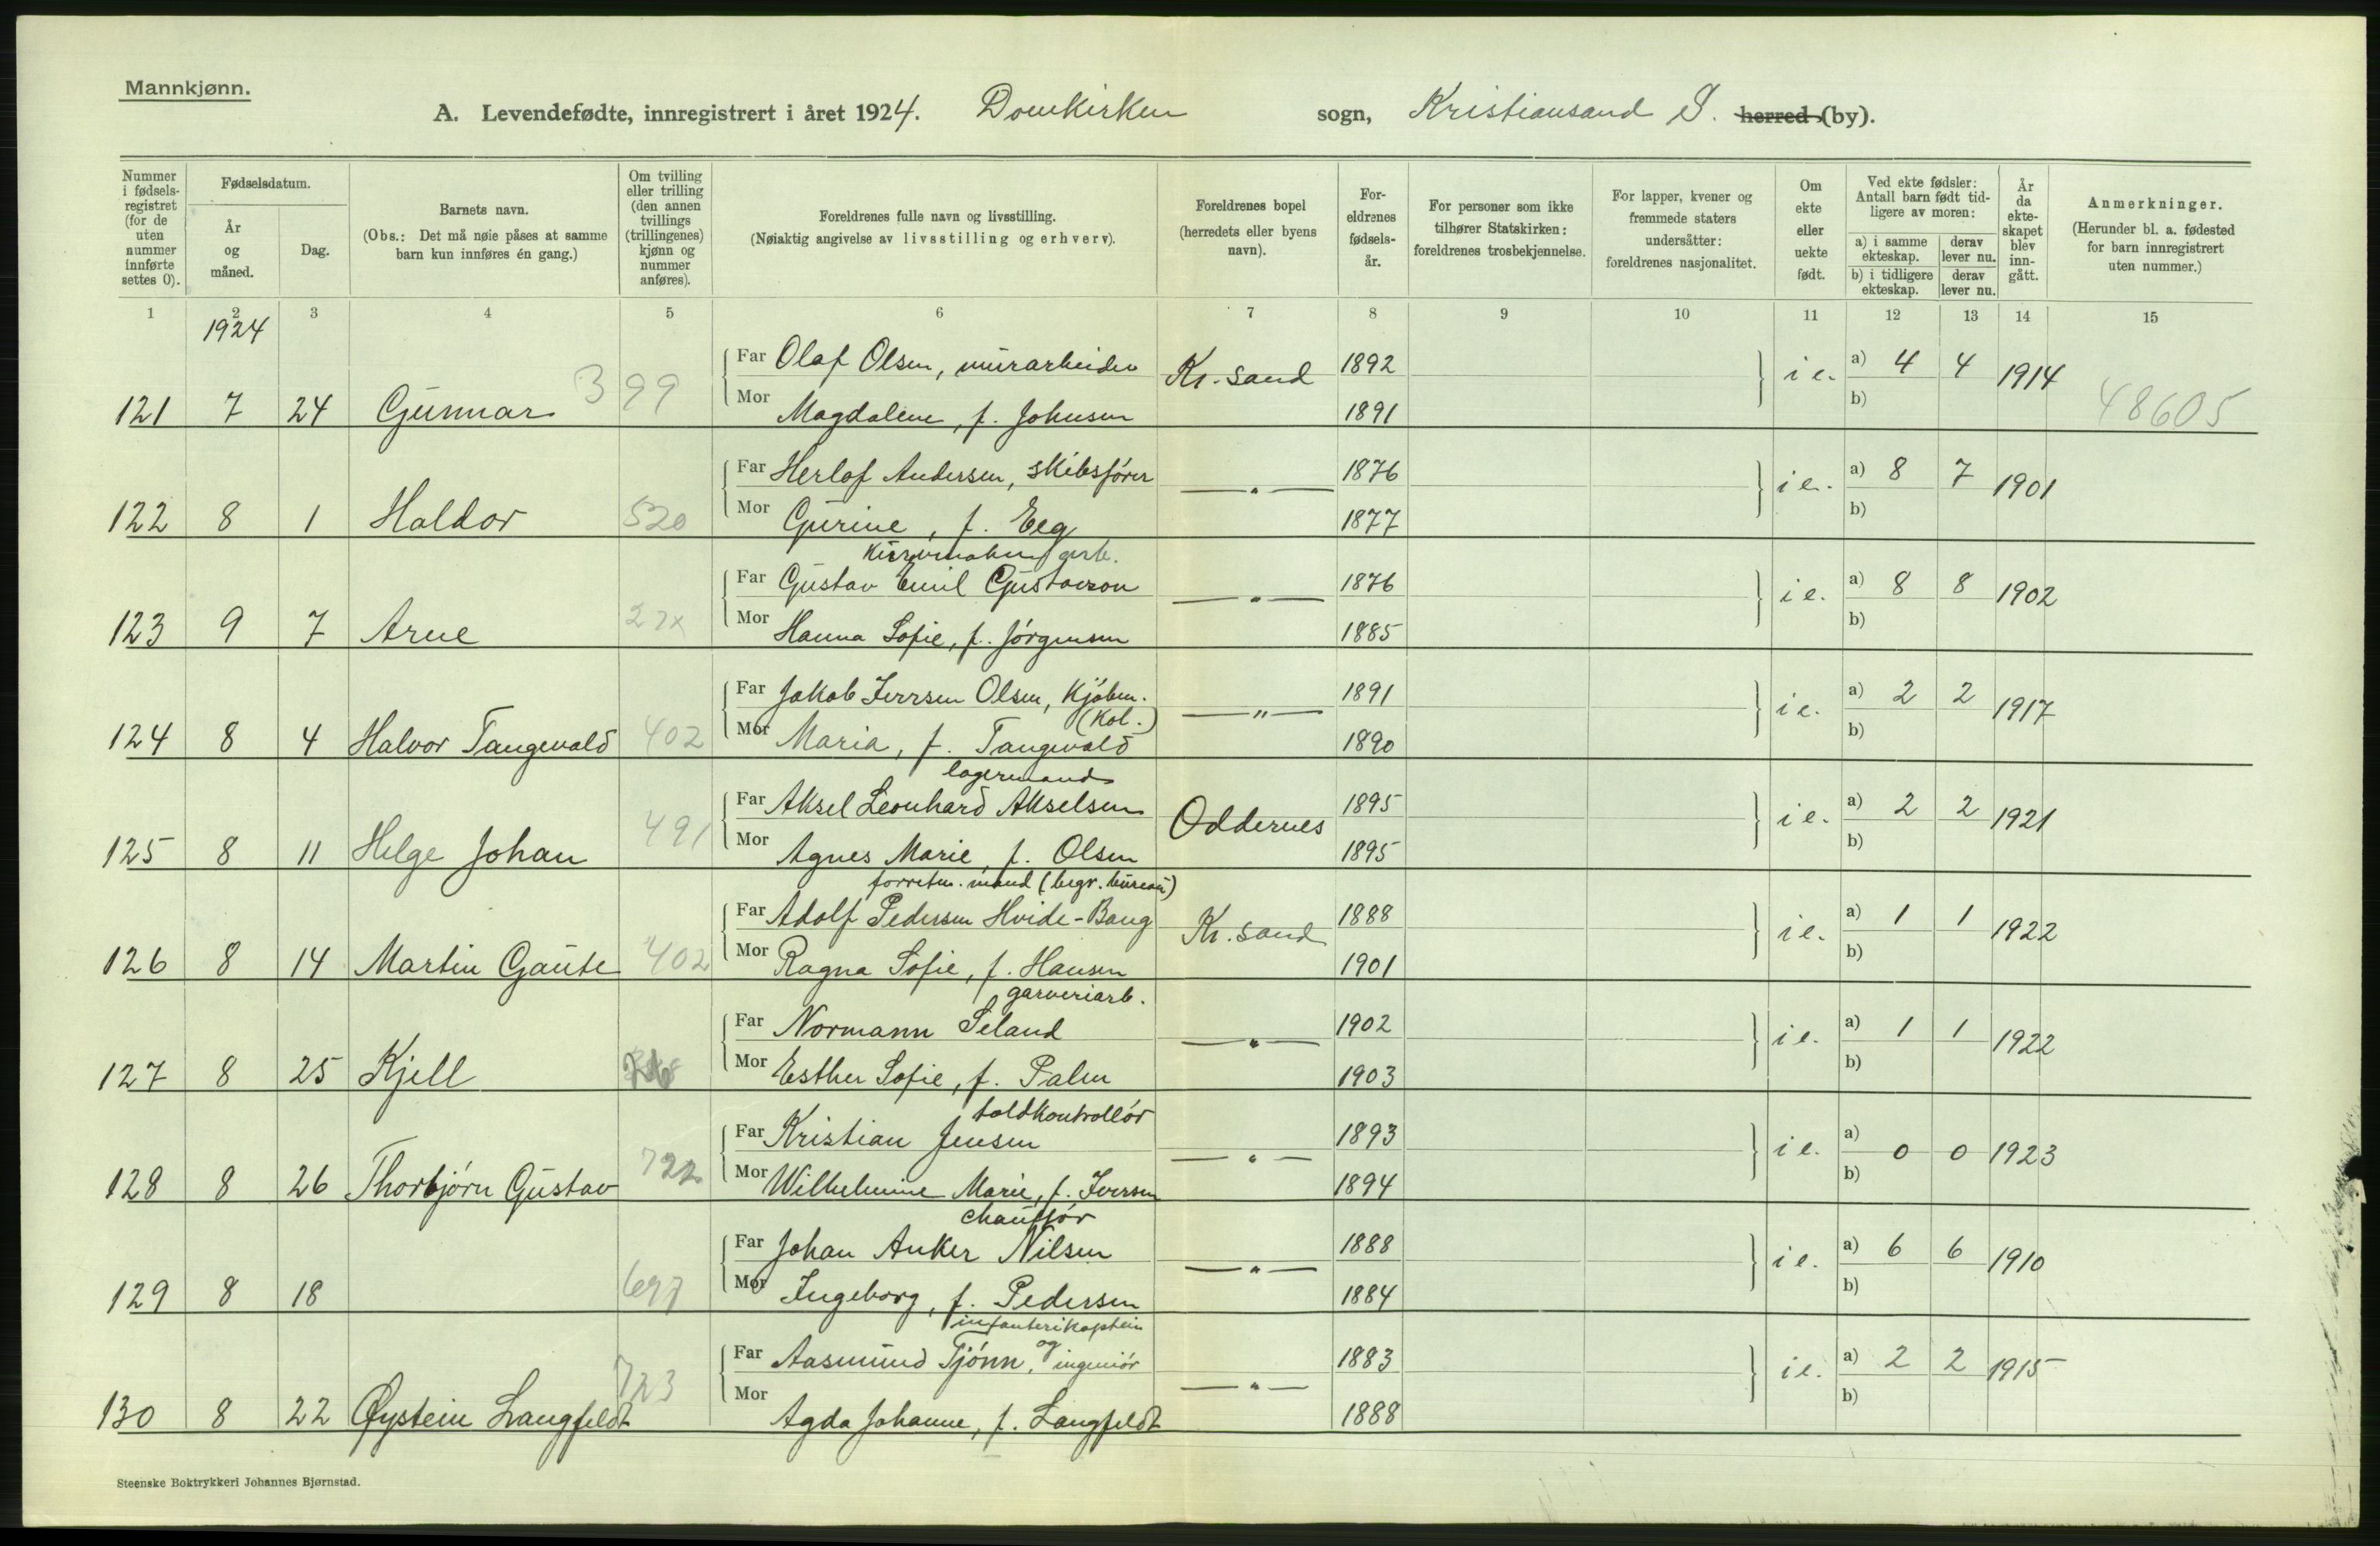 Mannkjønn.
A. Levendefødte, innregistrert i året 1924. Domkirken sogn, Kristiansand S. herred (by).
Nummer i fødsels-registret (for de uten nummer innførte settes 0).
Fødselsdatum.
År og måned.
Dag.
Barnets navn.
(Obs.: Det må nøie påses at samme barn kun innføres én gang.)
Om tvilling eller trilling (den annen tvillings (trillingenes) kjønn og nummer anføres).
Foreldrenes fulle navn og livsstilling.
(Nøiaktig angivelse av livsstilling og erhverv).
Foreldrenes bopel (herredets eller byens navn).
For-eldrenes fødsels-år.
For personer som ikke tilhører Statskirken: foreldrenes trosbekjennelse.
For lapper, kvener og fremmede staters undersåtter: foreldrenes nasjonalitet.
Om ekte eller uekte født.
Ved ekte fødsler: Antall barn født tid-ligere av moren:
a) i samme ekteskap. derav lever nu.
b) i tidligere ekteskap. derav lever nu.
År da ekte-skapet blev inn-gått.
Anmerkninger.
(Herunder bl. a. fødested for barn innregistrert uten nummer.)
1 2 3 4 5 6 7 8 9 10 11 12 13 14 15
1924
Far Olaf Olsen, murarbeider Kr.sand 1892 i e. a) 4 4 1914
121 7 24 Gunnar 399 Mor Magdalene, f. Johnsen 1891 b) 48605
Far Herlof Andersen, skibsfører —„— 1876 i e. a) 8 7 1901
122 8 1 Haldor 520 Mor Gurine, f. Eeg 1877 b)
Far Gustav Emil Gustavson —„— 1876 i e. a) 8 8 1902
123 9 7 Arne Mor Hanna Sofie, f. Jørgensen 1885 b)
Far Jakob Iversen Olsen, Kjøbm. (Kol.) —„— 1891 i e. a) 2 2 1917
124 8 4 Halvor Tangevald 402 Mor Maria, f. Tangevald 1890 b)
lagermand
Far Aksel Leonhard Akselsen Oddernes 1895 i e. a) 2 2 1921
125 8 11 Helge Johan 491 Mor Agnes Marie, f. Olsen 1895 b)
forretn.mand (begr. bureau)
Far Adolf Pedersen Hvide-Bang Kr.sand 1888 i e. a) 1 1 1922
126 8 14 Martin Gaute 402 Mor Ragna Sofie, f. Hansen 1901 b)
garveriarb.
Far Normann Seland —„— 1902 i e. a) 1 1 1922
127 8 25 Kjell Mor Esther Sofie, f. Palm 1903 b)
toldkontrollør
Far Kristian Jensen —„— 1893 i e. a) 0 0 1923
128 8 26 Thorbjørn Gustav 722 Mor Wilhelmine Marie, f. Iversen 1894 b)
chauffør
Far Johan Anker Nilsen —„— 1888 i e. a) 6 6 1910
129 8 18 697 Mor Ingeborg, f. Pedersen 1884 b)
infanterikaptein
Far Aasmund Tjønn, og ingeniør —„— 1883 i e. a) 2 2 1915
130 8 22 Øystein Langfeldt 723 Mor Agda Johanne, f. Langfeldt 1888 b)
Steenske Boktrykkeri Johannes Bjørnstad.